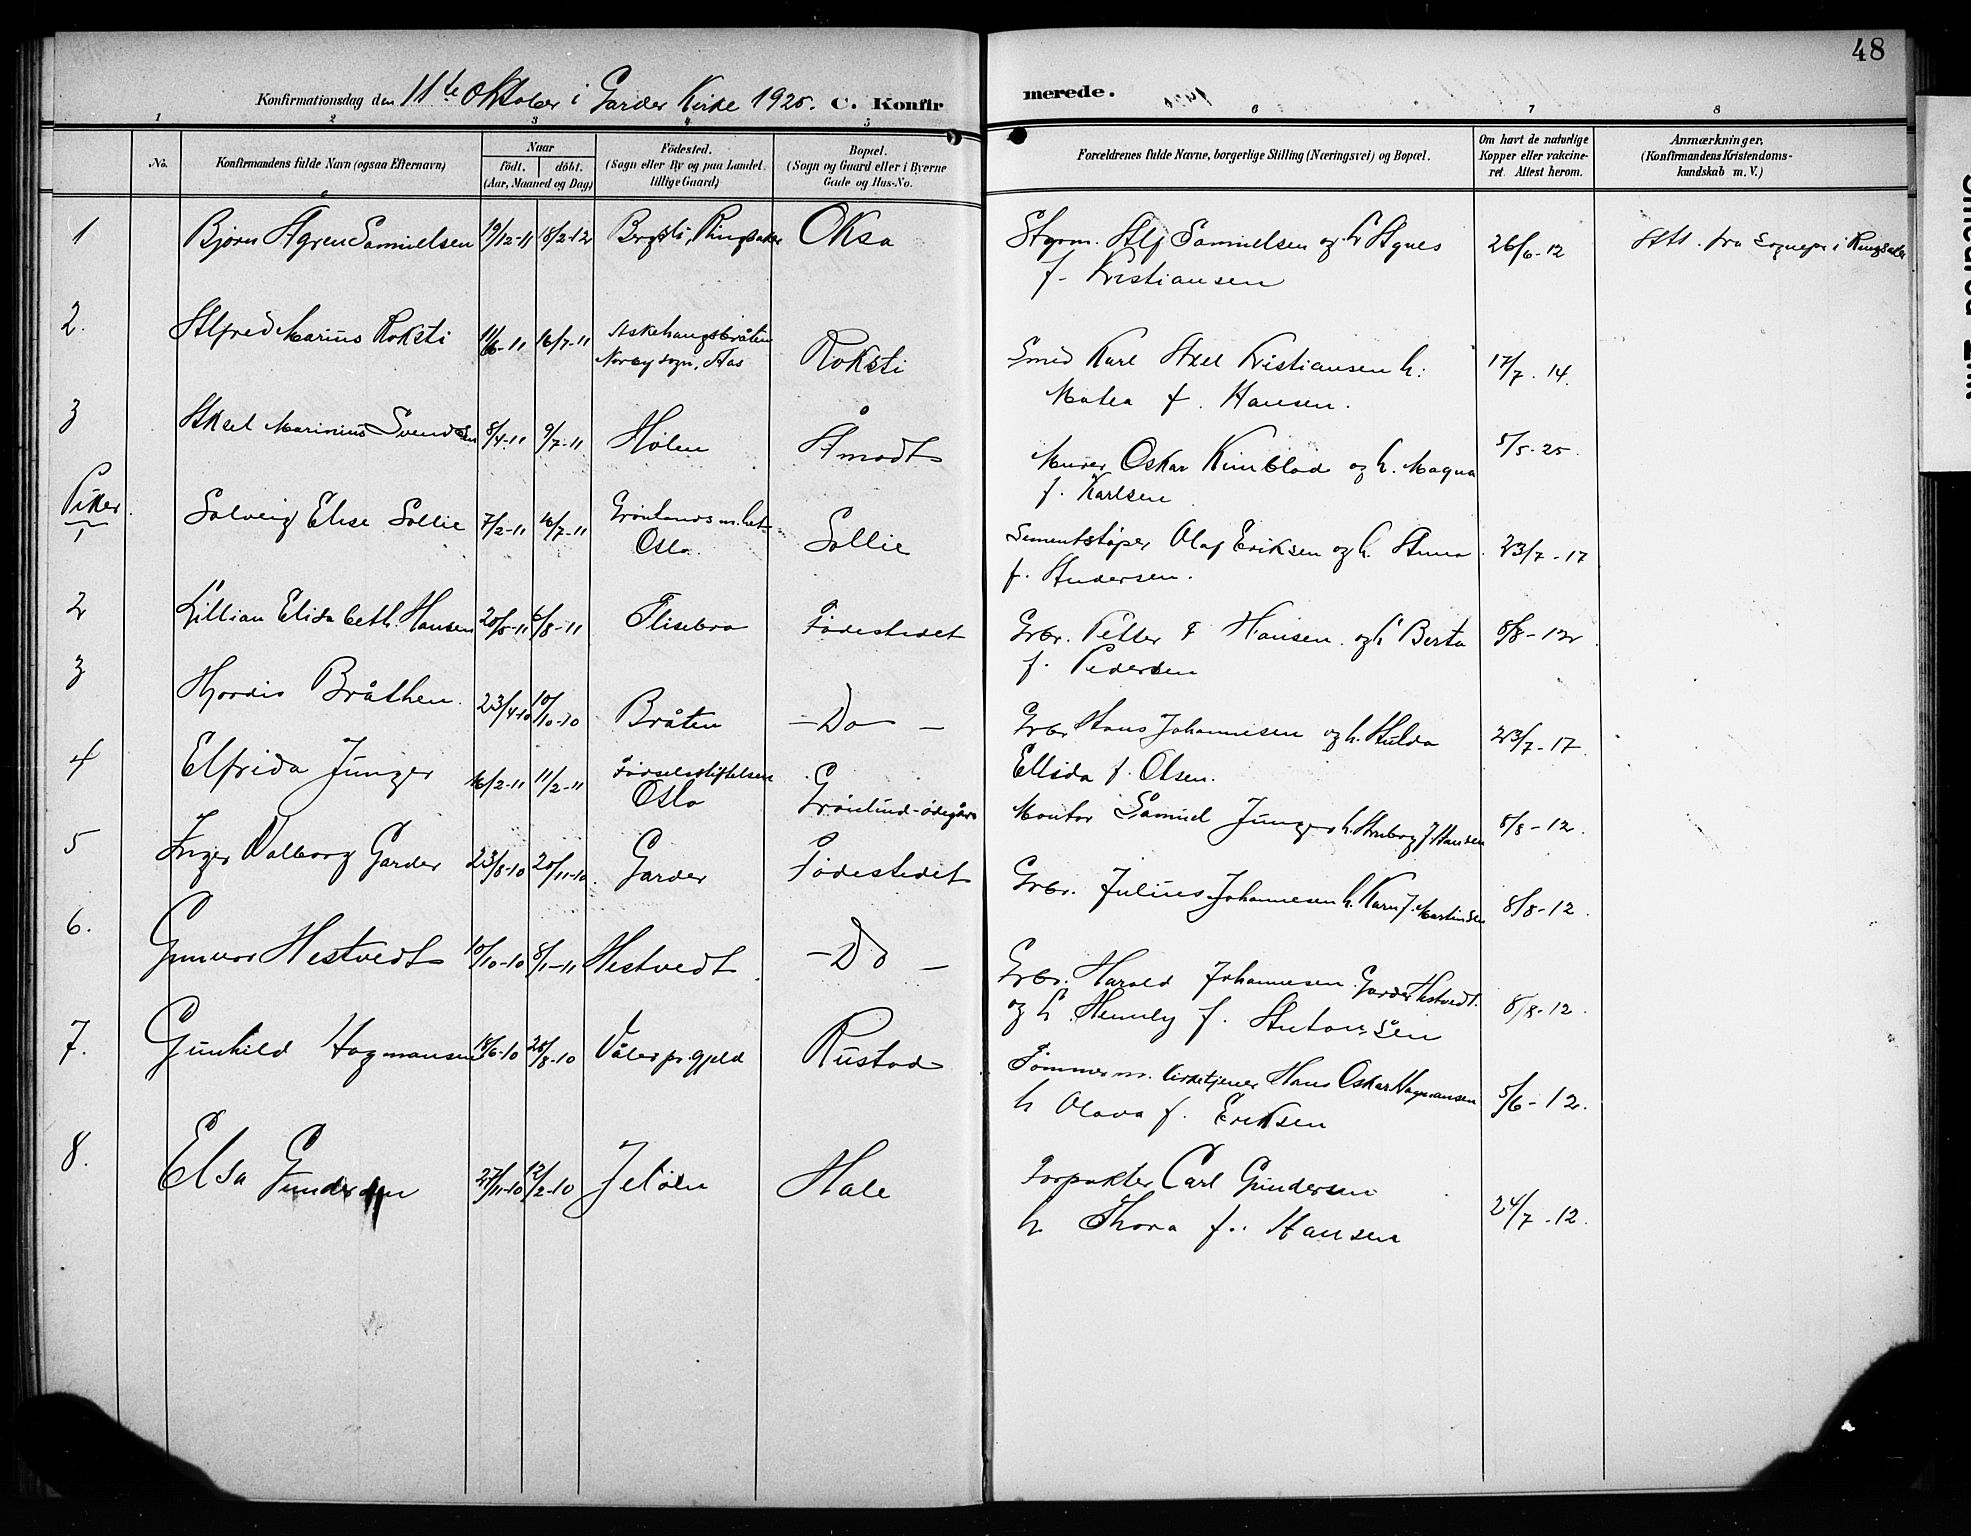 48
Konfirmationsdag den 11te Oktober i Garder Kirke 1925. C. Konfirmerede.
1 2 3 4 5 6 7 8
No.
Konfirmandens fulde Navn (ogsaa Efternavn)
Naar
födt. döbt.
(Aar, Maaned og Dag)
Födested.
(Sogn eller By og paa Landet tillige Gaard)
Bopæl.
(Sogn og Gaard eller i Byerne Gade og Hus-No.
Forældrenes fulde Navne, borgerlige Stilling (Næringsvei) og Bopæl.
Om havt de naturlige Kopper eller vakcineret. Attest herom.
Anmærkninger,
(Konfirmandens Kristendomskundskab m. V.)
1 Bjørn Ågren Samuelsen 19/12-11 18/2-12 Ringsaker Oksa
Alf Samuelsen og h Agnes 26/6-12 Att. fra Sognepr i Ringsaker
f. Kristiansen
2. Alfred Marius Roksti 11/6-11 16/7-11 Askehaugsbråten
Norby sogn, Aas Roksti
Smed Karl Axel Kristiansen h: 17/7.14.
Matea f. Hansen.
3 Aksel Marinius Svendsen 8/4-11 9/7-11 Hölen Åmodt
Murer Oskar og h. Magna 5/5-25.
f. Karlsen
Piker.
1 Solveig Elise Sollie 7/2-11 16/7-11 Grönlands m.het
Oslo. Sollie
Sementstöper Olaf Eriksen og h. Anna 23/7-17
f. Andersen.
2 Lillian Elisabeth Hansen 20/5-11 6/8-11 Flisebro Fødestedet
Grbr. Petter Hansen og h Berta 8/8-12
f. Pedersen
3 Hjordis Bråthen 23/4-10 10/10-10 Bråten - Do -
Grbr Hans Johannesen og h. Hulda 23/7-17
Ellida f. Olsen.
4 Elfrida Junger 16/2-11 11/2-11 Födselsstiftelsen
Oslo Grönlund-ödegård
Montör Samuel Junger h. f Hansen 8/8-12.
5 Inger Valborg Garder 23/8-10 20/11-10 Garder Fødestedet
Grbr. Julius Johannesen h. Karn f. Martinsen 8/8-12.
6. Gunvor Hestvedt 10/10-10 8/1-11 Hestvedt - Do -
Grbr. Harald Johannesen Garder Hestvedt. 8/8-12.
og h. Hennly f. Antonsen
7. Gunhild Hagmansen 18/6-10 28/8-10 Våler pr.gjeld Rustad
Tömmerm. kirketjener Hans Oskar Hagmansen 5/6-12.
h Olava f. Eriksen
8. Elsa Gundersen 27/11-10 12/2-10 Jelöen Hale
Forpakter Carl Gundersen 24/7-12.
h Thora f. Hansen